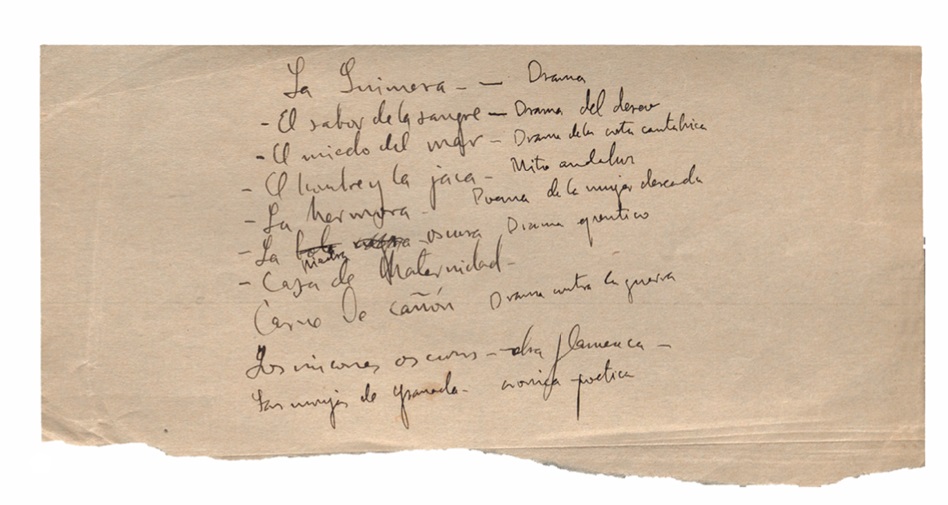 La Quimera - - Drama
- El sabor de la sangre - Drama del deseo
- El miedo del mar - Drama de la costa cantabrica
- El hombre y la jaca - Mito andaluz
- La hermosa - Poema de la mujer deseada
- La madre oscura Drama
- Casa de Maternidad -
Carne de cañón Drama contra la guerra
Los rincones oscuros - obra flamenca -
Las monjas de Granada - cronica poetica